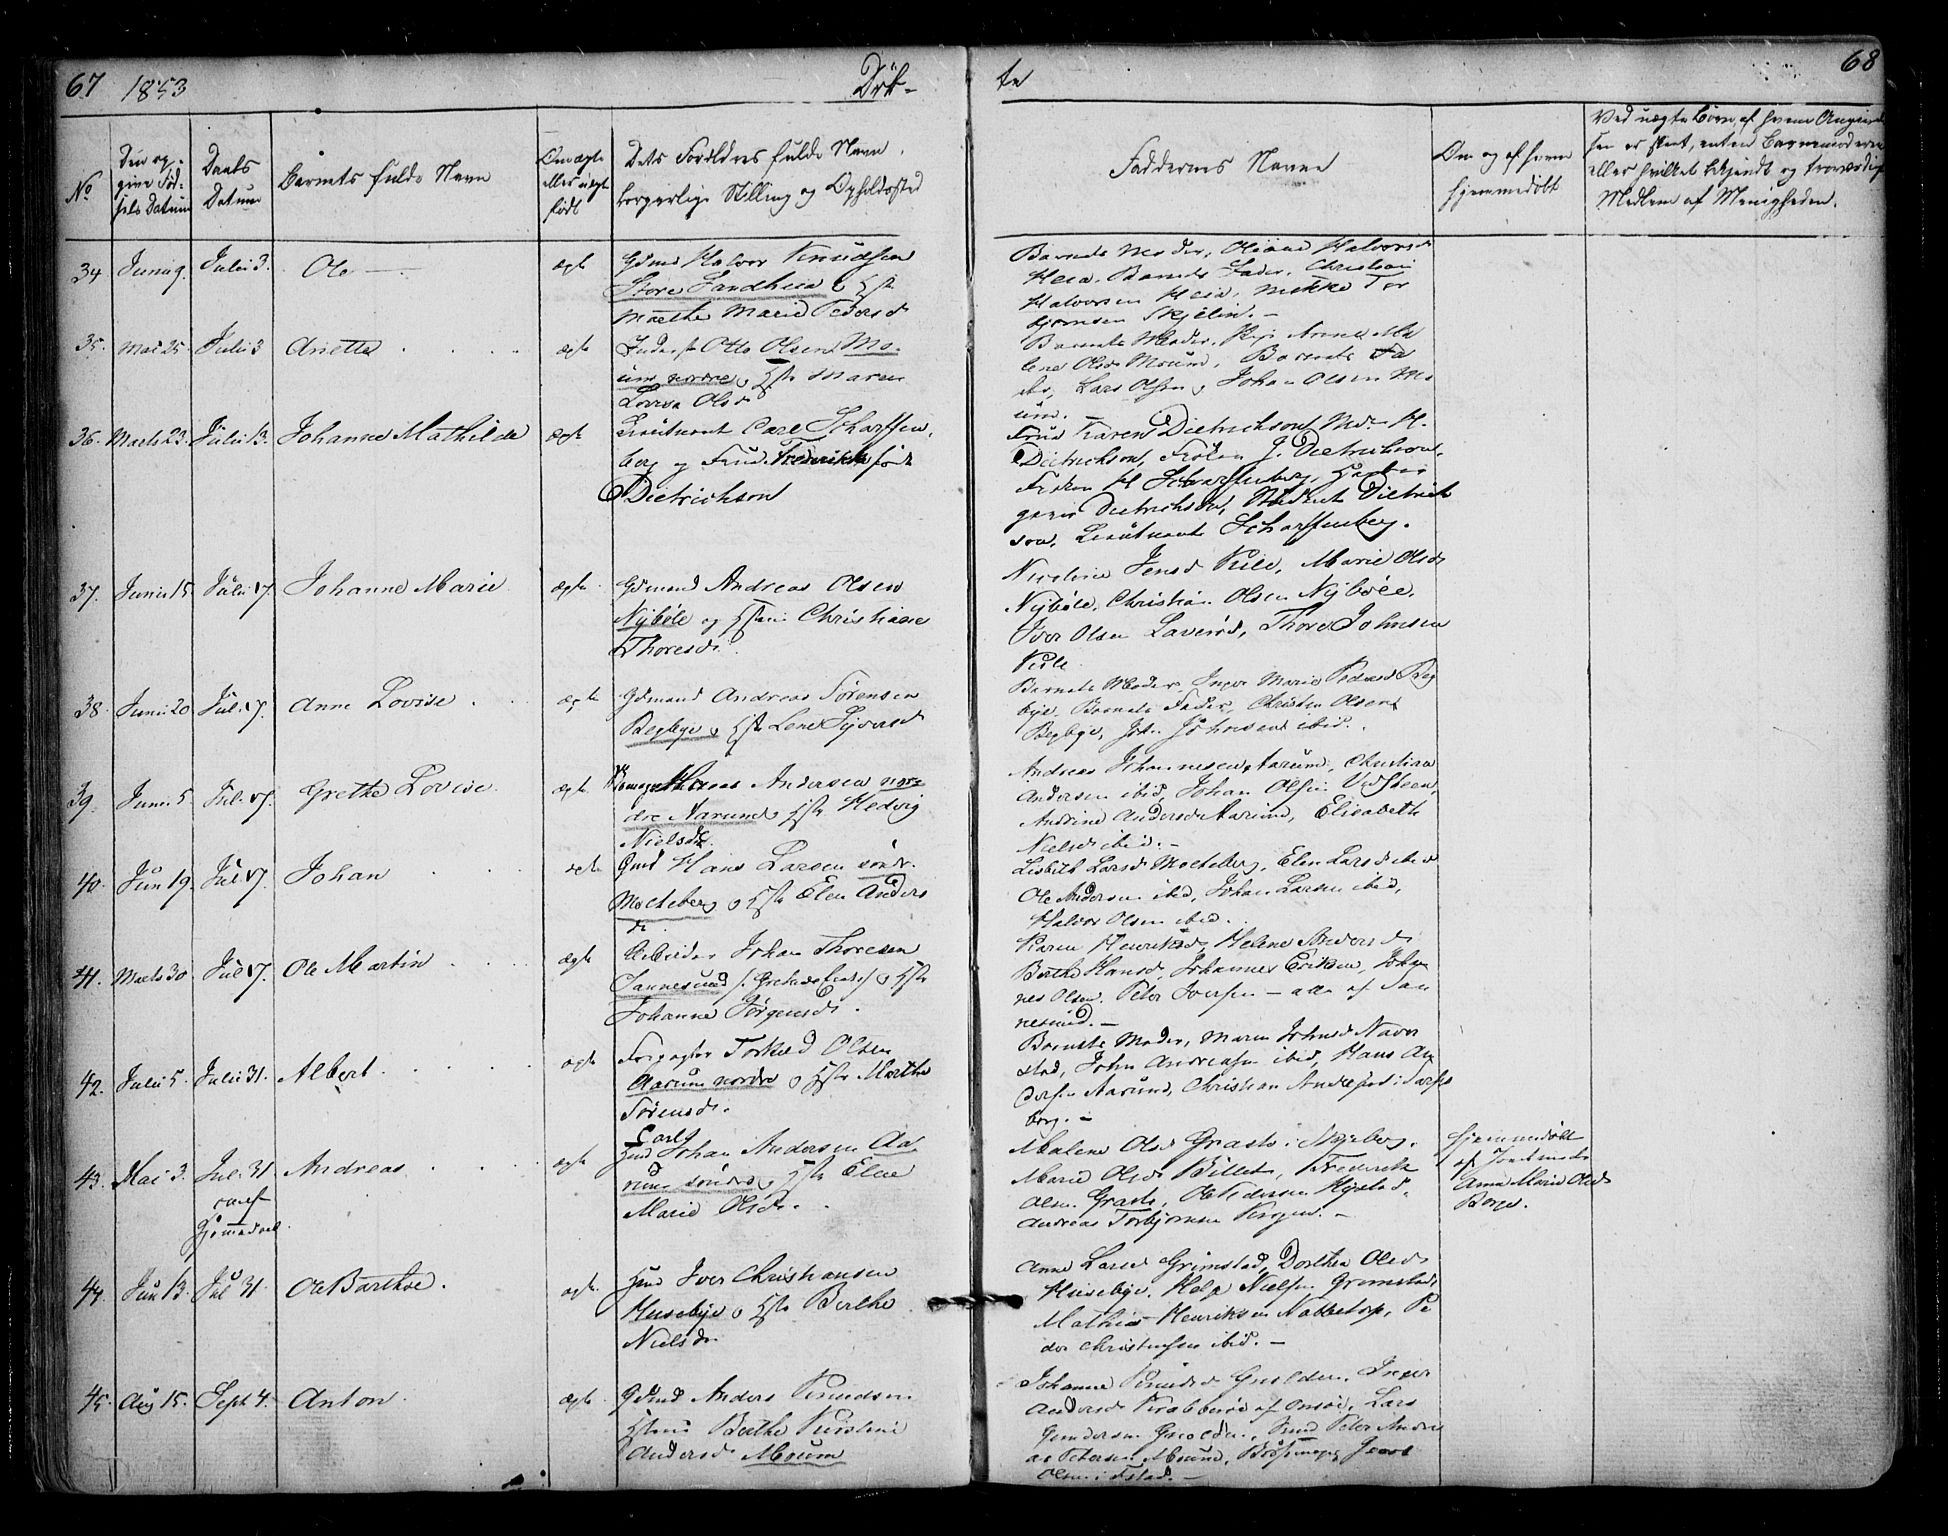 67 1853 Döb-
te 68
No
Den op-
give Föd-
sels Datum
Daabs
Datum
Barnets fulde Navn
Om ægte
eller uægte
født
Dets Forældres fulde Navn,
borgerlige Stilling og Opholdssted
Faddernes Navne
Om og af hvem
hjemmedöbt
Ved uægte Börn, af hvem Angivel
sen er skeet, enten Barnemoderen
eller hvilket bekjendt og troværdigt
Medlem af Menigheden.
34 Juni 9. Julii 3. Ole ægte
Gdmd Halvor Knudsen
Store Sandheia og Hst
Marthe Marie Peders d
Barnets Moder, Oliane Halvorsd
Heia, Barnets Fader, Christian
Halvorsen Heia, Mikkel Tor
björnsen Skjelin. -
35. Mai 25 Julii 3 Anette ægte
Inderst Otto Olsen Mo-
um nordre og Hst Maren
Lovisa Olsd
Barnets Moder, Pige Anne Ma
lene Olsd Moum, Barnets Fa
der, Lars Olsen, Johan Olsen Mo
um.
36. Marts 23. Julii 13. Johanne Mathilde ægte
Lieutnant Carl Scharffen
berg og Frue Frederikke född
Dietrichson
Frue Karen Dietrichson, Md. H.
Dietrichson, Fröken J. Dietrichson,
Fröken H Scharffenberg,
Dietrichson, Student Dietrich
son, Lieutnant Scharffenberg.
37. Junii 15 Julii 17. Johanne Marie ægte
Gdmand Andreas Olsen
Nÿböle og Hstru Christiane
Thoresd.
Nicoline Jensd Kile, Marie Olsd
Nÿböle, Christian Olsen Nÿböle,
Iver Olsen Laveröd, Thore Johnsen
Kile
38 Junii 20 Jul. 17. Anne Lovise ægte
Gdmand Andreas Sörensen
Begbye og Hst Lene Syversd
Barnets Moder, Inger Marie Pedersd Beg
bye, Barnets Fader, Christen Olsen
Begbye, Joh. Johnsen ibid.
39. Junii 5. Jul. 17. Grethe Lovise. ægte
Andersen nor-
dre Aarum og Hst Hedvig
Nielsd.
Andreas Johannesen Aarum, Christian
Andersen ibid, Johan Olsen Vidsteen,
Andrine Andersd Aarum, Elisabeth
Nielsd ibid. -
40. Jun 19. Jul 17. Johan ægte
Gmd Hans Larsen söndr.
Mocheberg og Hst Elen Anders
d.
Lisbeth Larsd Mocheberg, Elen Larsd ibid
Ole Andersen ibid, Johan Larsen ibid,
Halvor Olsen ibid.
41. Marts 30 Jul 17. Ole Martin ægte
Arbeider Johan Thoresen
Sannesund og Hst
Johanne Jörgensd.
Karen Henriksd, Helene Andersd
Berthe Hansd, Johannes Eriksen, Johan
nes Olsen. Peter Iversen - alle af San
nesund. -
42. Julii 5. Julii 31. Albert. ægte
Forpagter Torkild Olsen
Aarum nordre og Hst Marthe
Sörensd.
Barnets Moder, Maren Johnsd Naver
stad, John Andreasen ibid, Hans An
dersen Aarum, Christian Andersen i Sarps
borg. -
43. Mai 3. Jul. 31 Andreas ægte
conf
hjemmedaab.
Carl
Hmd Johan Andersen Aa
rum söndre og Hst Elene
Marie Olsd.
Malene Olsd Graste i Skjeberg.
Marie Olsd Billet, Frederik
Olsen Graste, Ole Pedersen Hystad,
Andreas Torbjörnsen
Hjemmedöbt
af Jordmoder
Anna Marie Olsd
Borge.
44. Jun 13. Jul 31. Ole Barthoe. ægte
Hmd Iver Christiansen
Huusebye og Hst Berthe
Nielsd.
Anne Larsd Grimstad, Dorthea Olsd
Huusebye, Helge Nielsen Grimstad,
Mathias Henriksen Nabbetorp, Pe
der Christensen ibid. -
45. Aug 15. Sept 4. Anton. ægte
Gdmd Anders Knudsen
Hstru Berthe Kirstine
Andersd Moum
Johanne Knudsd Guslden, Inger
Andersd Krabberöd af Onsöe, Lars
Gundersen Guslden, Peter Andre
as Petersen Moum,
Olsen i Fstad. -